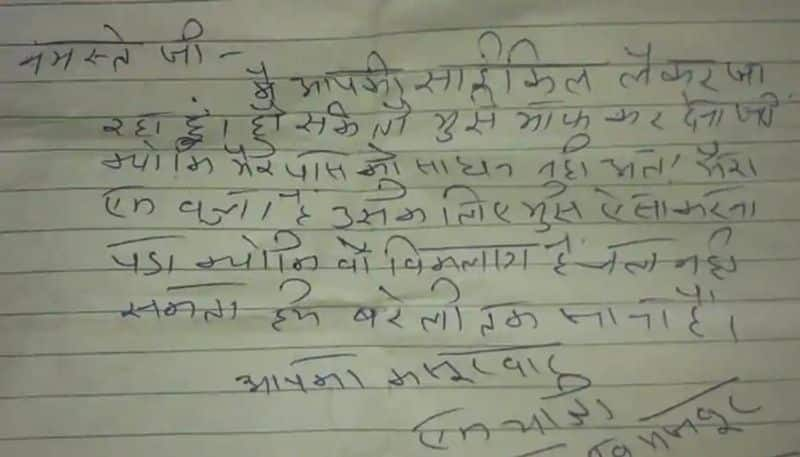 नमस्ते जी -
मै आपकी साईकिल लेकर जा
रहा हूं। हो सके तो मुझे माफ कर देना जी
क्योकि मेरे पास को साधन नही अतः मेरा
एक बच्चा है उसके लिए मुझे ऐसा करना
पडा क्योकि वो विकलांग है चल नही
सकता हमे बरेली तक जाना है।
आपका कसूरवार
एक यात्री
मजबूर